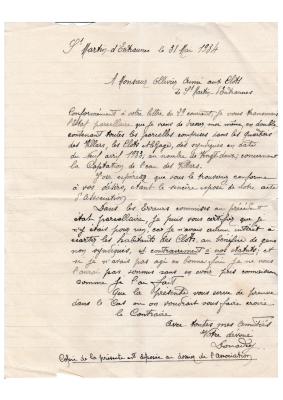 St Martin d'Entraunes le 31 Mai 1934
A Monsieur Ollivier Aimé aux Clots
de St Martin d'Entraunes
Conformément à votre lettre du 29 courant, je vous transmets
l'état parcellaire que je viens de dresser moi même, en double
contenant toutes les parcelles comprises dans les quartiers
des Villars, les Clots et
du neuf avril 1933, au nombre de Vingt deux, concernant
la Captation de l'eau des Villars.
J'ose espérer que vous le trouverez conforme
à vos désirs, étant le sincère exposé de votre acte
d'Association.
Dans les Erreurs commises au précédent
état parcellaire, je puis vous certifier que je
n'y étais pour rien, car je n'avais aucun intérêt à
écarter les habitants des Clots, au bénéfice de gens
non syndiqués, et contrairement à vos statuts, et
si je n'avais pas agi en bonne foi, je ne vous
l'aurai pas soumis sans en avoir pris connaissance
comme je l'ai fait
Que la présente vous serve de preuve
dans le Cas où on voudrait vous faire croire
le Contraire
Avec toutes mes amitiés
Votre dévoué
Copie de la présente est déposée au dossier de l'Association